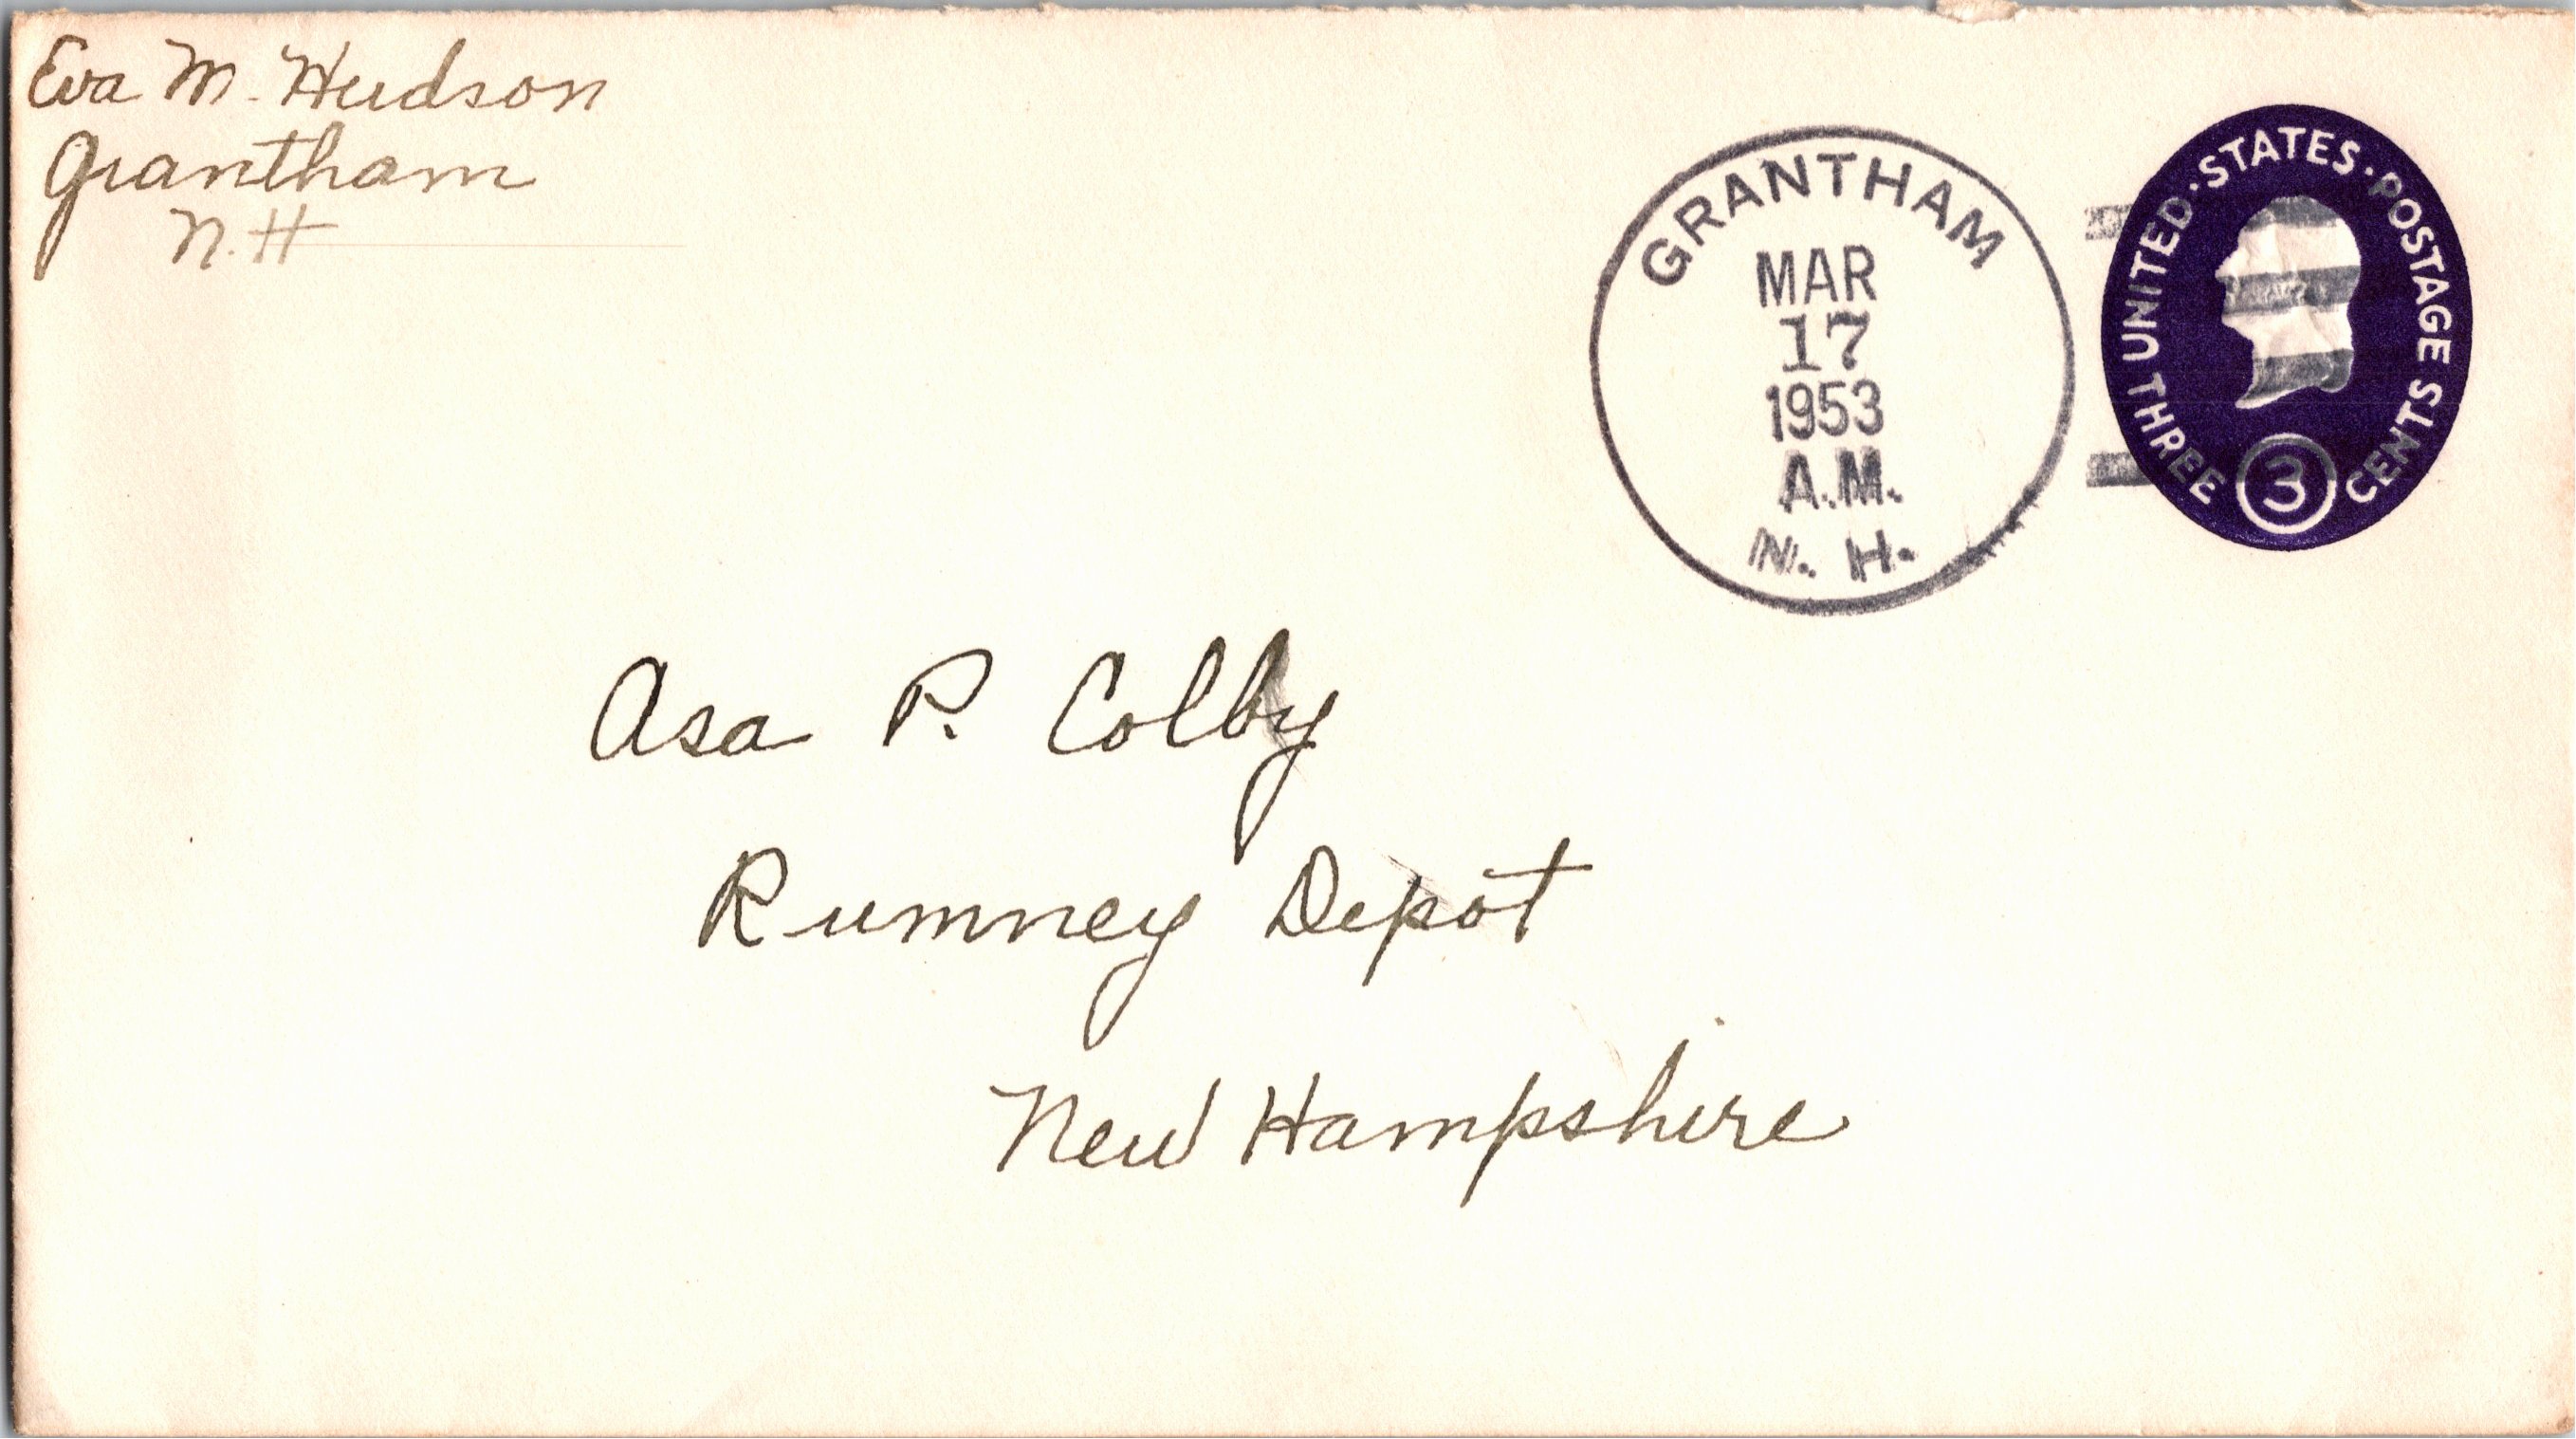 Eva M. Hudson
Grantham
N.H
GRANTHAM
MAR
17
1953
A.M.
N. H.
UNITED · STATES · POSTAGE
THREE 3 CENTS
Asa P. Colby
Rumney Depot
New Hampshire